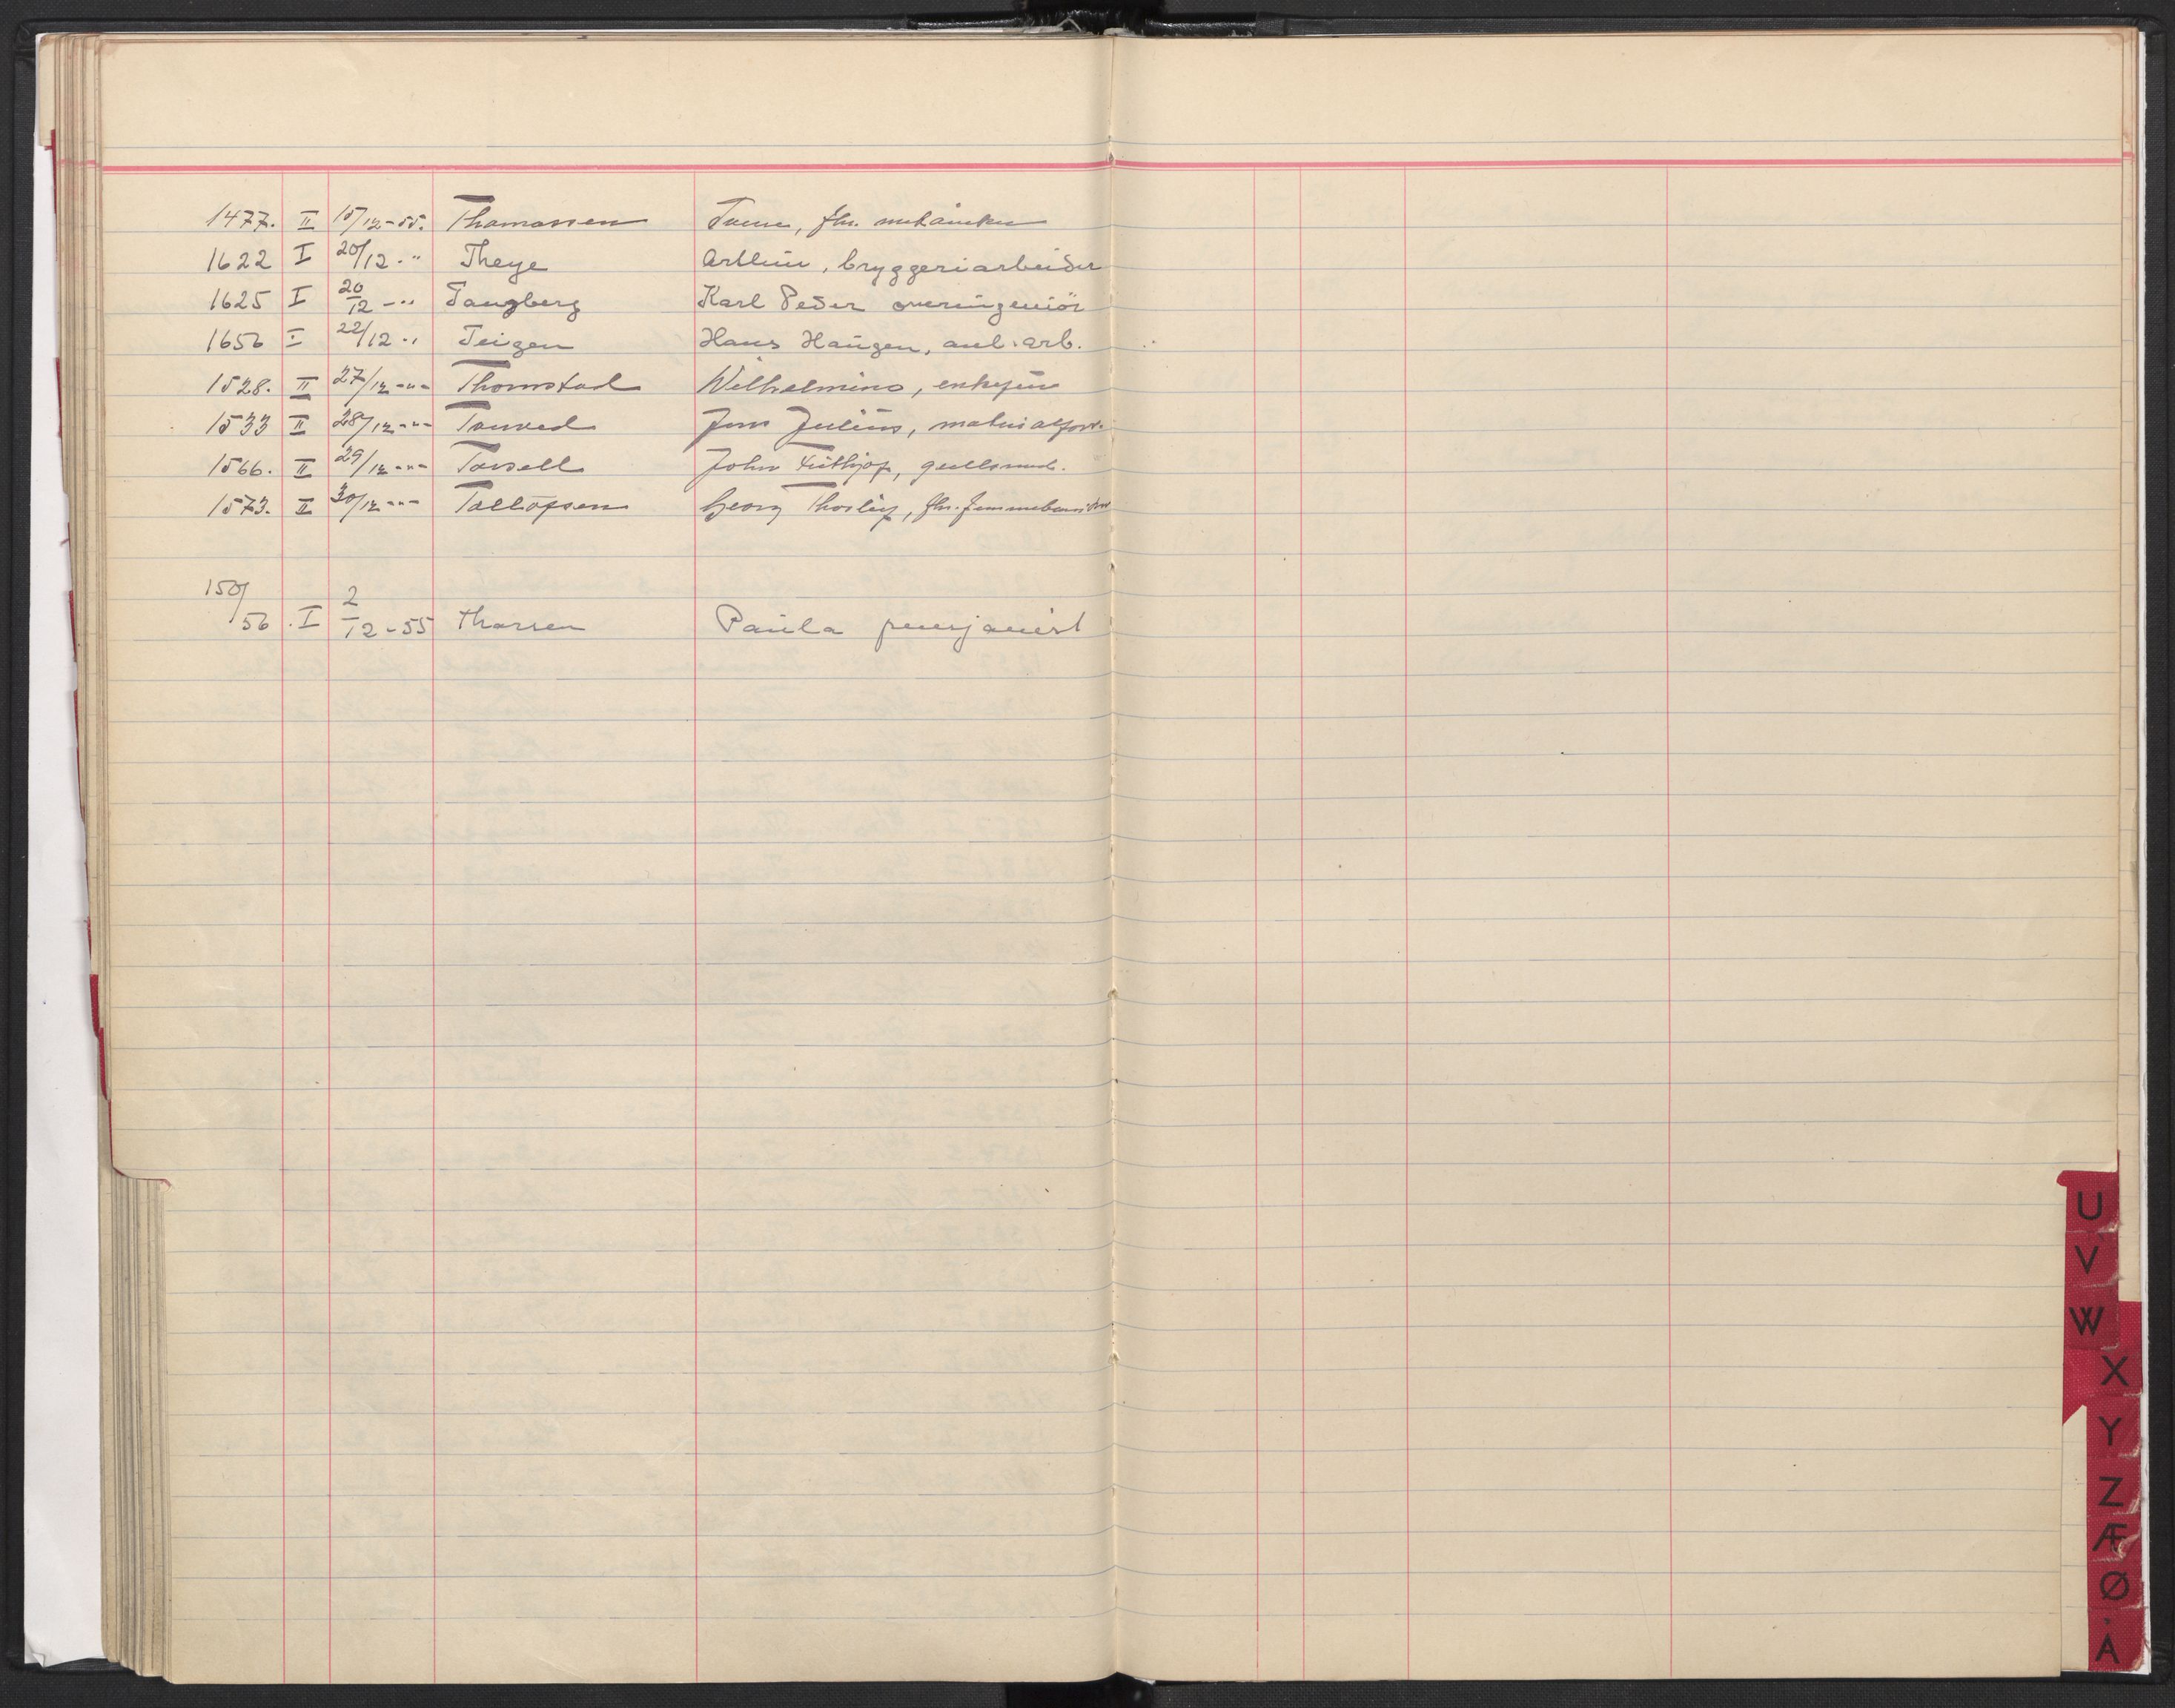 1477. II 15/12-55. Thomassen fhv.
1622 I 20/12 - " Theye Arthur, bryggeriarbeider
1625 I 20/12 - " Tangberg Karl Peder overingeniör
1656 I 22/12 - " Teigen Hans Haugen, anl.arb.
1528. II 27/12 - " - Thomstad Wilhelmine, enkefru
1533 II 28/12 - " - Julius, materialforv.
1566. II 29/12 - " - Torsell John Frithjof, gullsmed.
1573. II 30/12 - " - Tollofsen Georg Thorleif, fhv.
150/56. I 2/12-55 Thorsen Paula pensjonist
U
V
W
X
Y
Z
Æ
Ø
Å